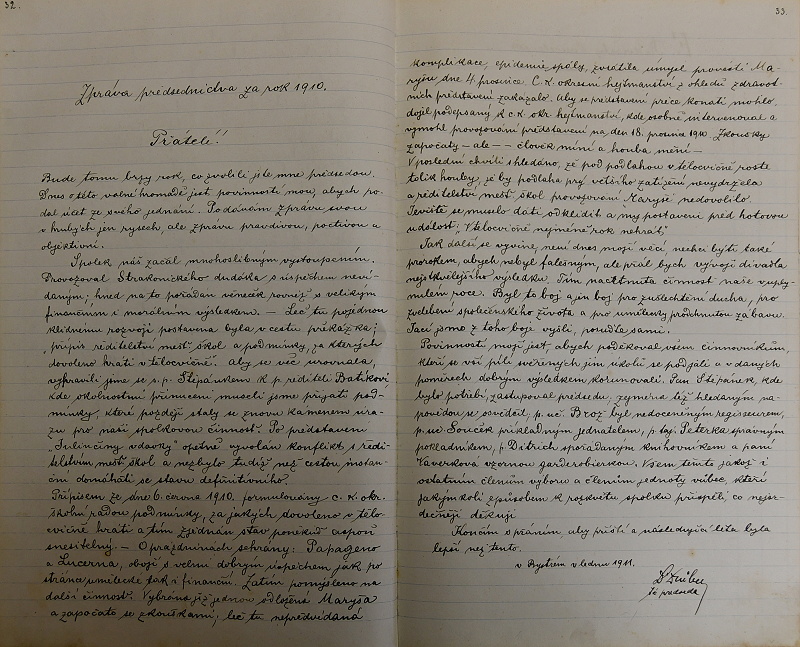 32.
Zpráva předsednictva za rok 1910.
Přátelé!
Bude tomu brzy rok, co zvolili jste mne předsedou.
Dnes o této valné hromadě jest povinností mou, abych po-
dal účet ze svého jednání. Podávám zprávu svou
v hrubých jen rysech, ale zprávu pravdivou, poctivou a
objektivní.
Spolek náš začal mnohoslibným vystoupením.
Provozoval Strakonického dudáka s úspěchem neví-
daným; hned na to pořádan věneček rovněž s velikým
finančním i morálním výsledkem. — Leč tu pojednou
klidnému rozvoji postavena byla v cestu překážka;
přípis ředitelství mešť. škol a podmínky, za kterých
dovoleno hráti v tělocvičně. Aby se věc urovnala,
vypravili jsme se s p. Štěpánkem k p. řediteli Batíkovi
kde okolnostmi přinuceni museli jsme přijati pod-
mínky, které později staly se znovu kamenem úra-
zu pro naši spolkovou činnost. Po představení
opětně vyvolán konflikt s ředi-
telstvím mešť. škol a nezbylo tudíž než cestou instan-
ční domáhati se stavu definitivního.
Přípisem ze dne 6. června 1910. formulovány c. k. okr.
školní radou podmínky, za jakých dovoleno v tělo-
cvičně hráti a tím zjednán stav poněkud aspoň
snesitelný. — O prázdninách sehrány: Papageno
a Lucerna, obojí s velmi dobrým úspěchem jak po
stránce umělecké tak i finanční. Zatím pomýšleno na
další činnost. Vybrána již jednou odložená Maryša
a započato se zkouškami; leč tu nepředvídaná
33.
komplikace, epidemie spály, zvrátila úmysl provésti Ma-
ryšu dne 4. prosince. C. k. okresní hejtmanství z ohledů zdravot-
ních představení zakázalo. Aby se představení přece konati mohlo,
dojel podepsaný k c. k. okr. hejtmanství, kde osobně intervenoval a
vymohl provozování představení na den 18. prosince 1910. Zkoušky
započaty — ale — člověk míní a houba mění —
V poslední chvíli shledáno, že pod podlahou v tělocvičně roste
tolik houby, že by podlaha prý většího zatížení nevydržela
a ředitelství mešť. škol provozování Maryše nedovolilo.
Jeviště se muselo dáti odkliditi a my postaveni před hotovou
událost: V tělocvičně nejméně rok nehrát!
Jak další se vyvine, není dnes mojí věcí, nechci býti také
prorokem, abych nebyl falešným, ale přál bych vývoji divadla
nejskvělejšího výsledku. Tím načrtnuta činnost naše v uply-
nulém roce. Byl to boj a jen boj pro zušlechtění ducha, pro
zvelebení společenského života a pro uměním prodchnutou zábavu.
Jací jsme z toho boje vyšli, posuďte sami.
Povinností mojí jest, abych poděkoval všem činovníkům,
kteří se vší pílí svěřených jim úkolů se podjali a v daných
poměrech dobrým výsledkem korunovali. Pan Štěpánek, kde
bylo potřebí, zastupoval předsedu, zejména též hledaným ná-
povědou se osvědčil, p. uč. Brož byl nedoceněným režiseurem,
p. uč. Souček příkladným jednatelem, p. taj. Peterka správným
pokladníkem, p. Ditrich spořádaným knihovníkem a paní
Vaverková vzornou garderobierkou. Všem těmto jakož i
ostatním členům výboru a členům jednoty vůbec, kteří
jakýmkoli způsobem k rozkvětu spolku přispěli, co nejsr-
dečněji děkuji
Končím s přáním, aby příští a následující léta byla
lepší než tento.
v Bystrém v lednu 1911.
t. č. předseda